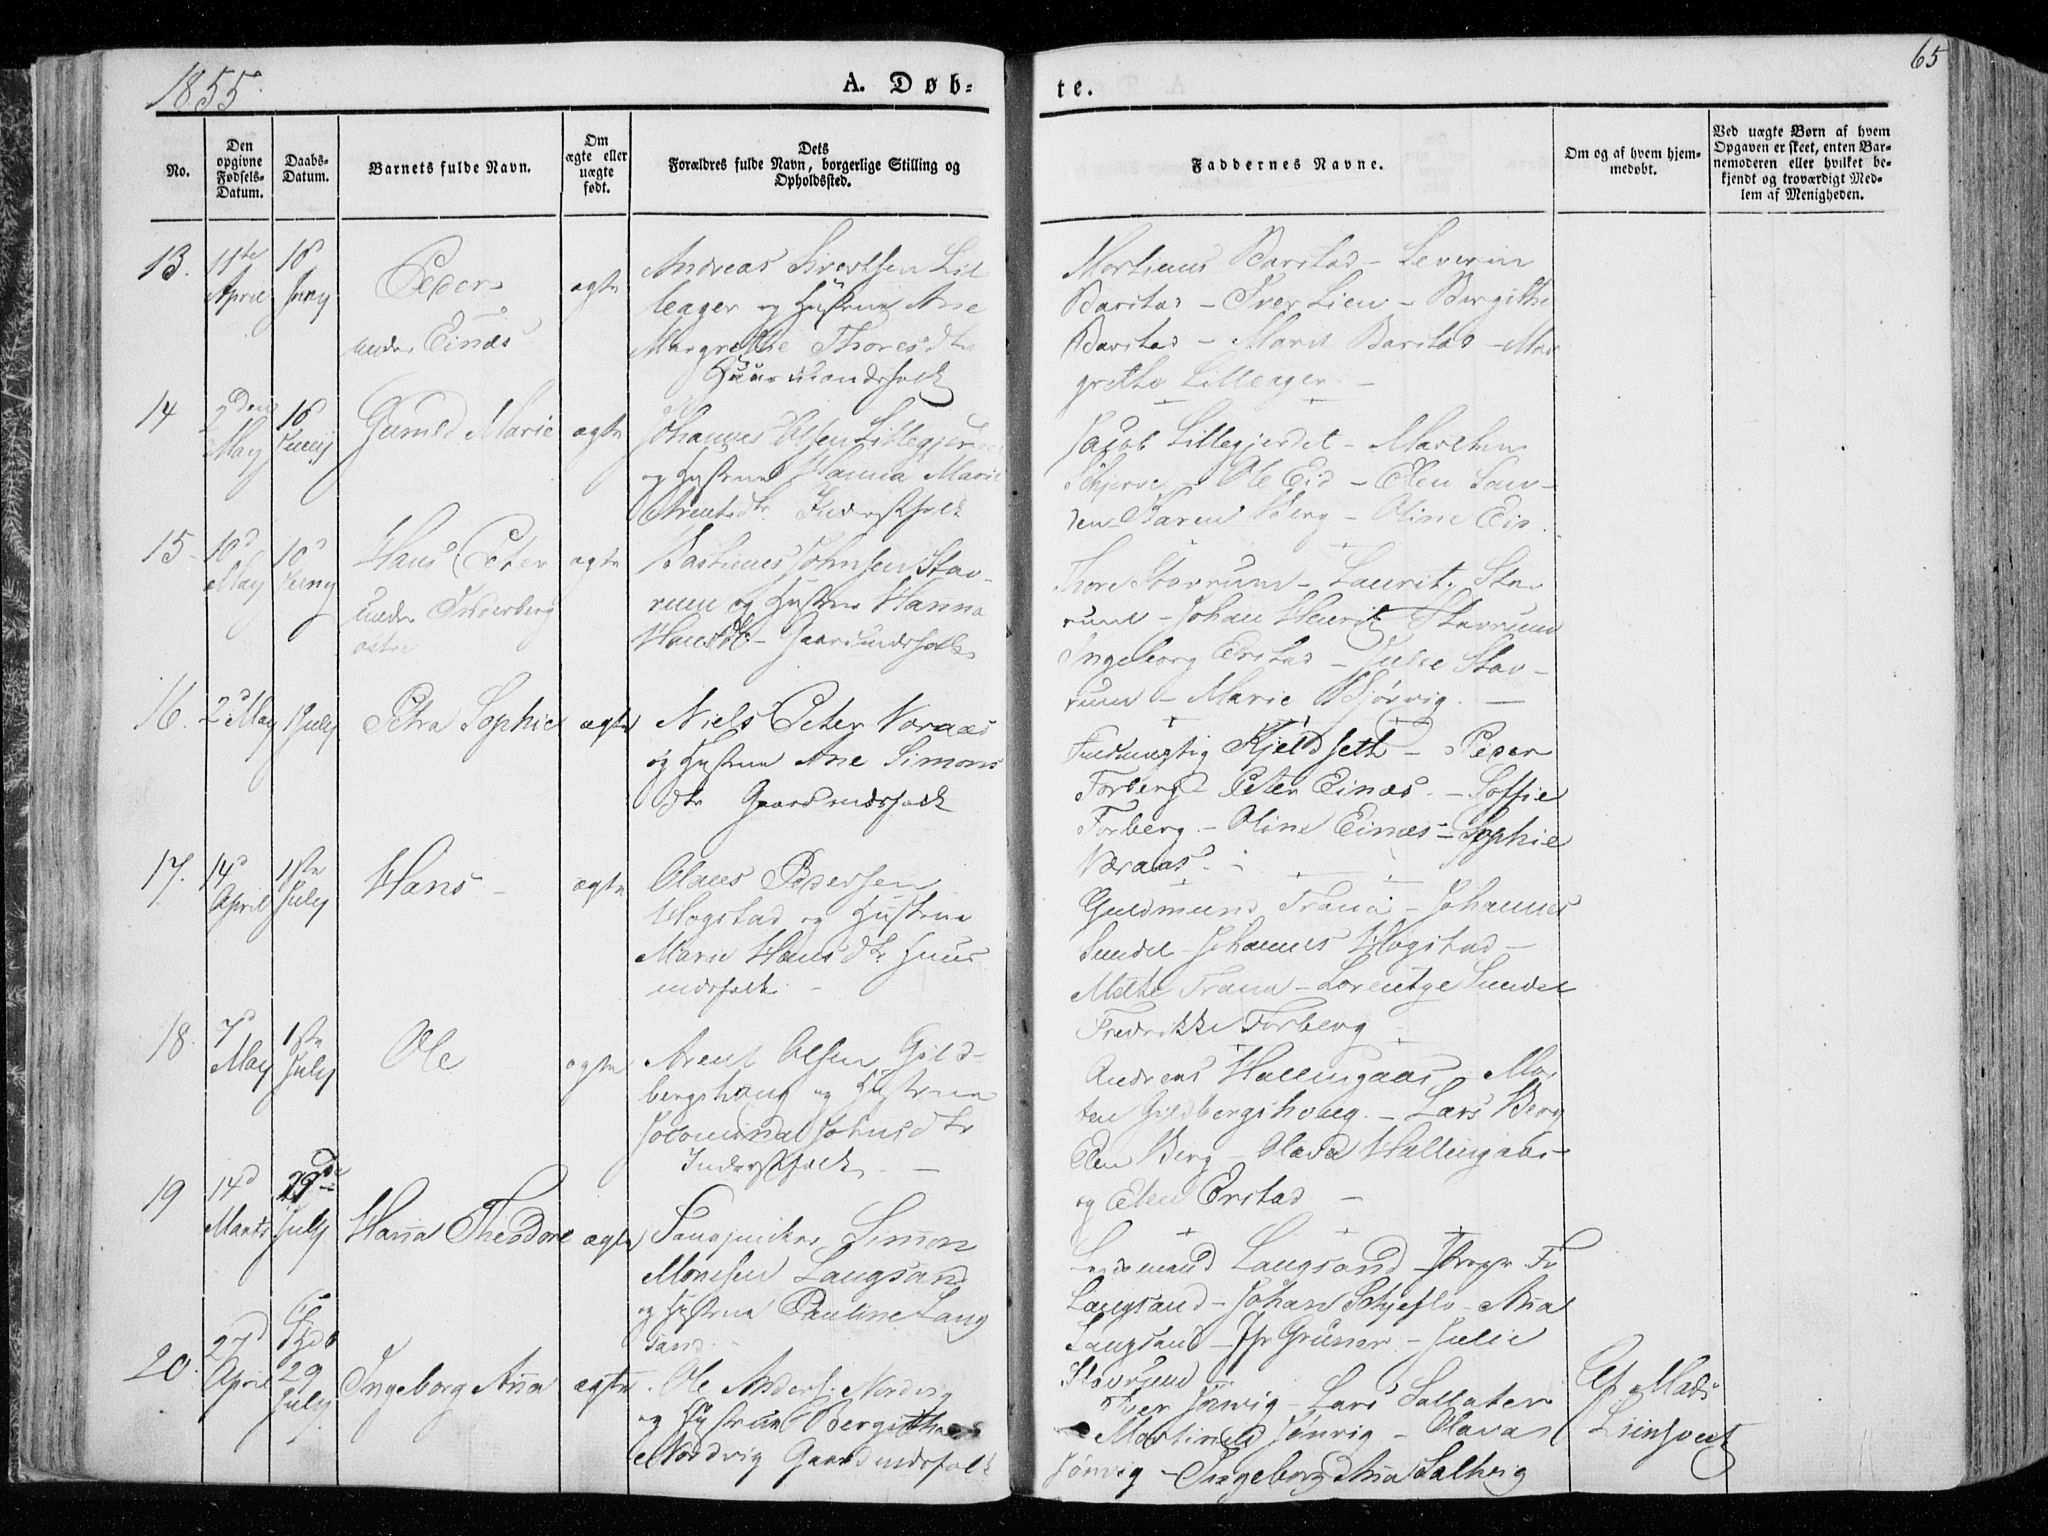 1855.
A. Døb-
te.
65
No.
Den opgivne Fødsels-Datum.
Daabs-Datum.
Barnets fulde Navn.
Om ægte eller uægte født.
Dets Forældres fulde Navn, borgerlige Stilling og Opholdssted.
Faddernes Navne.
Om og af hvem hjemmedøbt.
Ved uægte Børn af hvem Opgaven er skeet, enten Barnemoderen eller hvilket bekjendt og troværdigt Medlem af Menigheden.
13.
11te April
10 Juny
Peder
under Einæs
ægte
Andreas Sivertsen Lil
leager og Hustrue Ane
Margrethe Thoresdtr
Huusmandsfolk
Martinus Barstad - Severin
Barstad - Iver Lien - Birgithe
Barstad - Marit Barstad - Mar
grethe Lilleager. -
14
2den May
10 Juny
Gunild Marie
ægte
Johannes Olsen Lillegjerdet
og Hustrue Hanna Marie
Arentsdtr. Inderstfolk
Jacob Lillegjerdet - Marthin
Schjerve - Ole Eid - Elen San-
den Karen Berg - Oline Eid.
15
10d May
10d Juny
Hans Peter
under Inderberg
østre
ægte
Bastianus Johnsen Stav-
rum og Hustrue Hanna
Hansdtr - Gaardmandsfolk
Thore Stavrum - Laurits Stav
rum - Johan Henrik Stavrum
Ingeborg Erstad - Julie Stav-
rum - Marie Bjørvig. -
16.
2d May
1 July
Petra Sophie
ægte
Niels Peter Voraas
og Hustrue Ane Simons
dtr Gaardmandsfolk
Kjeldseth - Peder
Forberg Peter Einæs - Soffie
Forberg. - Oline Einæs - Sophie
Voraas. -
17.
14d April
1ste July
Hans -
ægte
Olaus Pedersen
Hogstad og Hustrue
Marie Hansdtr Huus
mdsfolk. -
Guldmund Trana - Johannes
Sundel - Johannes Hogstad -
Mette Trana - Lorentze Sundel
Fredrikke Forberg
18.
7d May
1ste July
Ole
ægte
Arent Olsen Gild-
bergshaug og Hustrue
Johnsdtr
Inderstfolk. -
Andreas Hallingaas - Mor
ten Gildbergshoug. - Lars Berg
Elen Berg - Olava Hallingaas -
og Elen Erstad -
19
14d Marts
29de July
Hanna Theodore
ægte
Simon
Monssen Langsand
og Hustrue Pauline Lang
sand. -
Langsand
Langsand - Johan Schjeflo - Anna
Langsand - Jfr Gruner - Julie
Stavrum
20.
27d April
29 July
Ingeborg Anna
ægte
Ole Anders. Nordvig
og Hustrue Bergitha
Nordvig Gaardmdsfolk
Iver Jønvig - Lars Salløter
Martinus Jønvig - Olava
Jønvig - Ingeborg Anna Saltvig
Af Mads